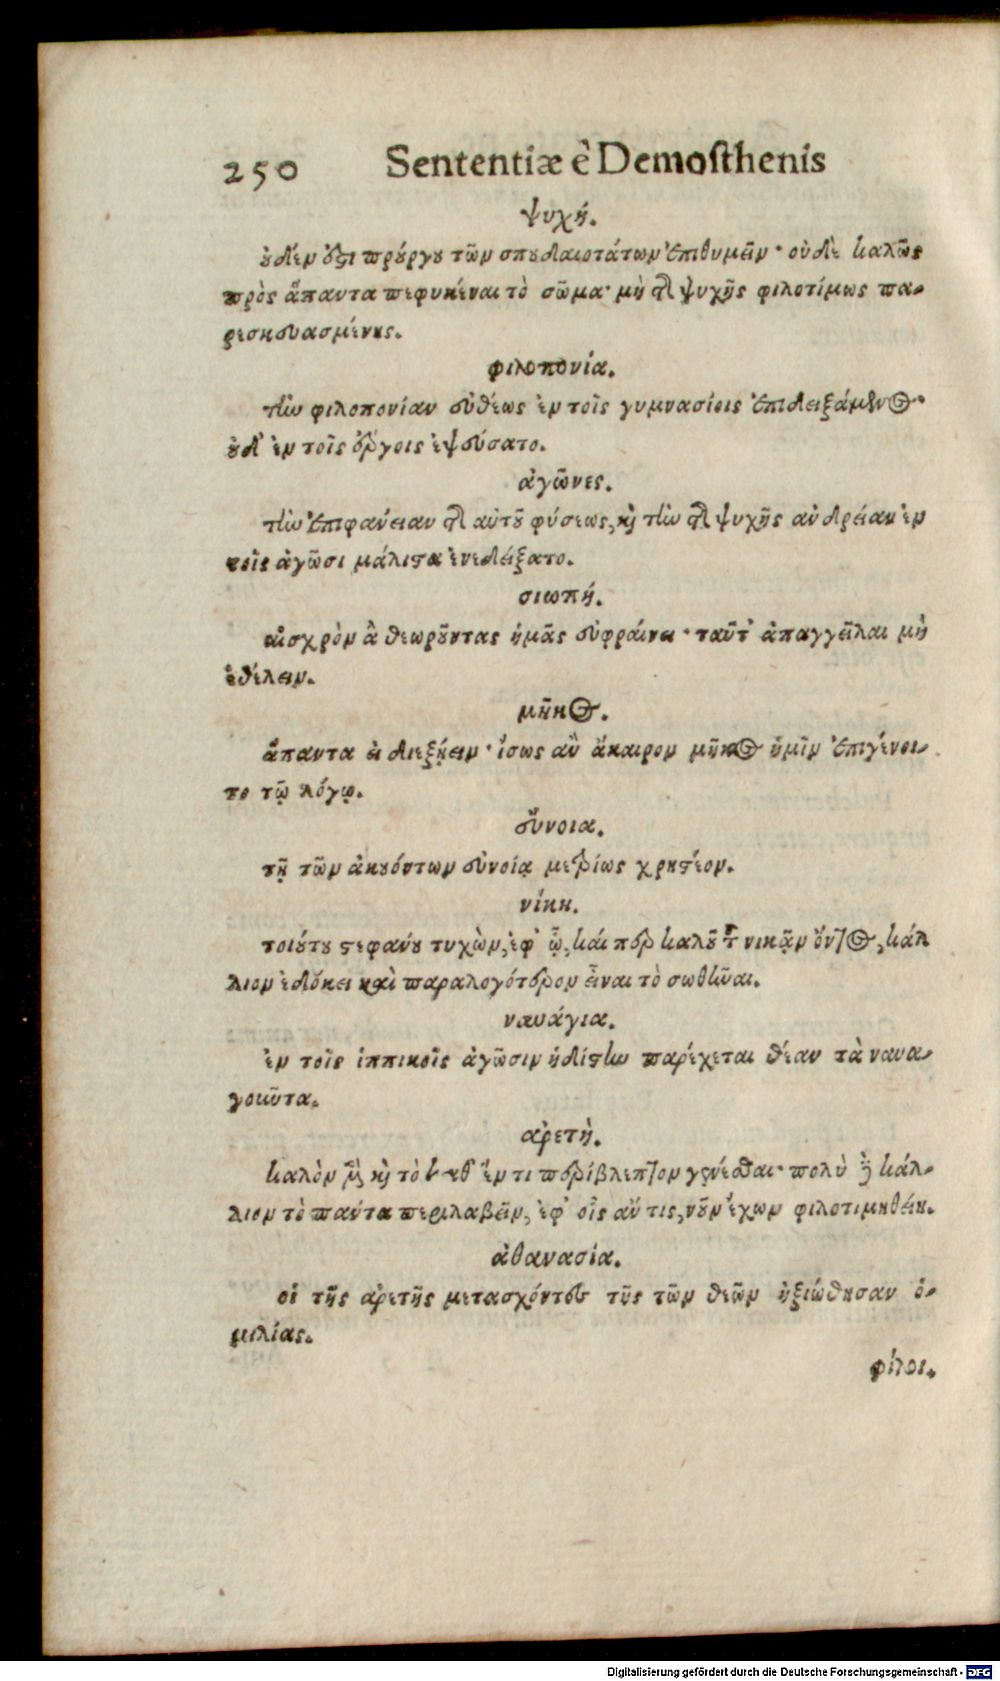 250 Sententiæ è Demosthenis
ψυχή.
οὐδέν ἐστι προὔργου τῶν σπουδαιοτάτων ἐπιθυμεῖν· οὐδὲ καλῶς
πρὸς ἅπαντα πεφυκέναι τὸ σῶμα· μὴ τῆς ψυχῆς φιλοτίμως πα-
ρεσκευασμένης.
φιλοπονία.
τὴν φιλοπονίαν εὐθέως ἐν τοῖς γυμνασίοις ἐπιδειξάμενος·
οὐδ' ἐν τοῖς ἔργοις ἐψεύσατο.
ἀγῶνες.
τὴν ἐπιφάνειαν τῆς αὐτοῦ φύσεως, καὶ τὴν τῆς ψυχῆς ἀνδρείαν ἐν
τοῖς ἀγῶσι μάλιστα ἐνεδείξατο.
σιωπή.
αἰσχρὸν ἃ θεωροῦντας ἡμᾶς εὐφραίνει· ταῦτ' ἀπαγγεῖλαι μὴ
ἐθέλειν.
μῆκος.
ἅπαντα εἰ διεξῄειν· ἴσως ἂν ἄκαιρον μῆκος ἡμῖν ἐπιγένοι-
το τῷ λόγῳ.
εὔνοια.
τῇ τῶν ἀκουόντων εὐνοίᾳ μετρίως χρηστέον.
νίκη.
τοιούτου στεφάνου τυχὼν, ἐφ' ᾧ, καί περ καλοῦ τοῦ νικᾷν ὄντος, κάλ
λιον ἐδόκει καὶ παραλογότερον εἶναι τὸ σωθῆναι.
ναυάγια.
ἐν τοῖς ἱππικοῖς ἀγῶσιν ἡδίστην παρέχεται θέαν τὰ ναυα-
γοῦντα.
ἀρετή.
καλὸν μὲν καὶ τὸ καθ' ἕν τι περίβλεπτον γενέσθαι· πολὺ δὲ κάλ-
λιον τὸ πάντα περιλαβεῖν, ἐφ' οἷς ἄν τις, νοῦν ἔχων φιλοτιμηθείη.
ἀθανασία.
οἱ τῆς ἀρετῆς μετασχόντες τῆς τῶν θεῶν ἠξιώθησαν ὁ-
μιλίας.
φίλοι.
Digitalisierung gefördert durch die Deutsche Forschungsgemeinschaft - DFG